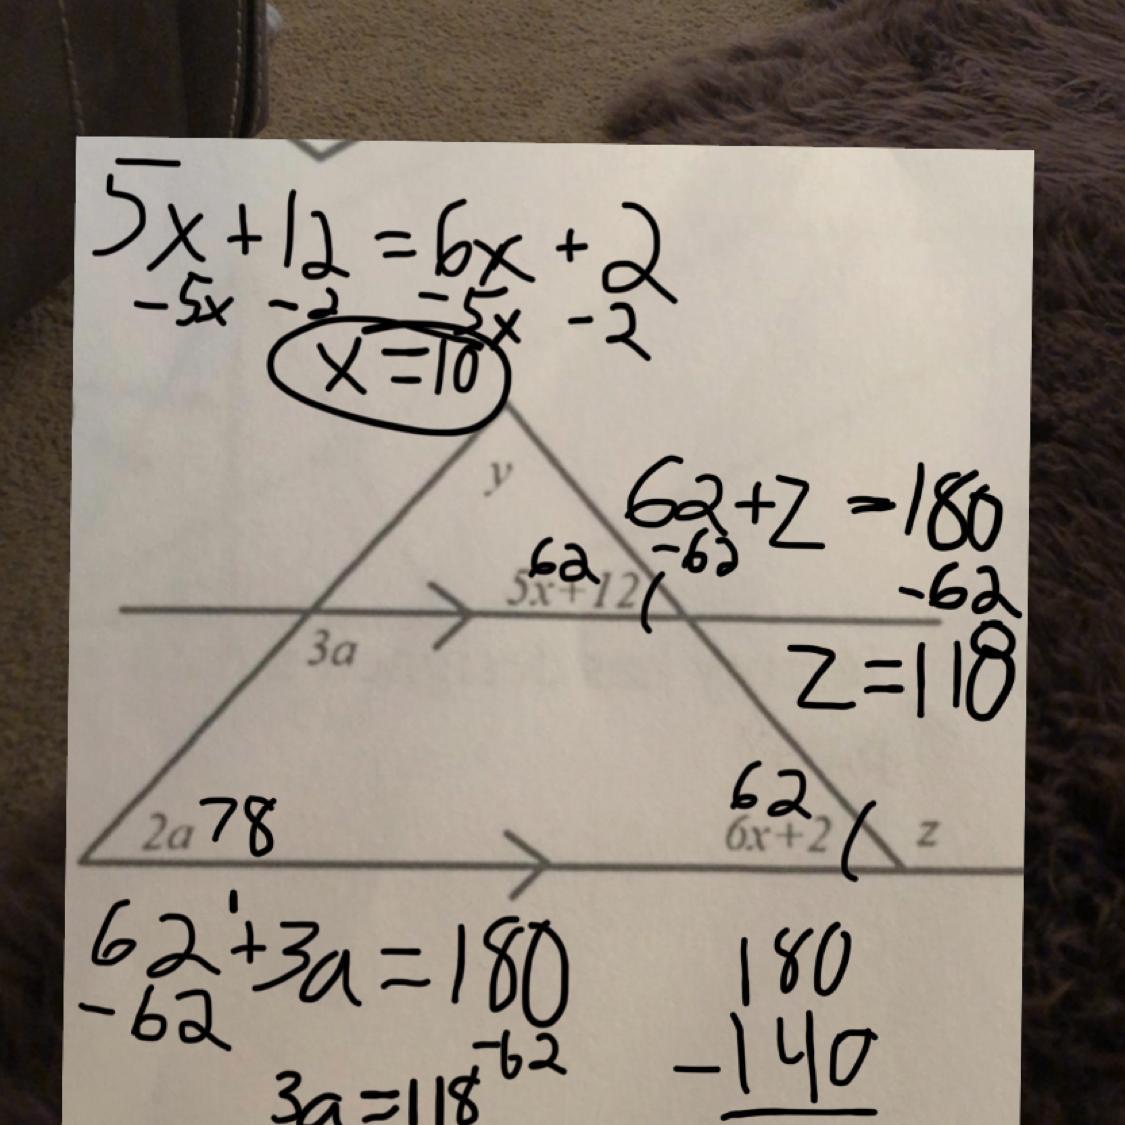 5x + 12 = 6x + 2
-5x -2 -5x -2
x = 10
y
62 + z = 180
-62 -62
z = 118
62
5x+12
3a
62
2a 78
6x+2
z
62 + 3a = 180
-62 -62
3a = 118
180
-140